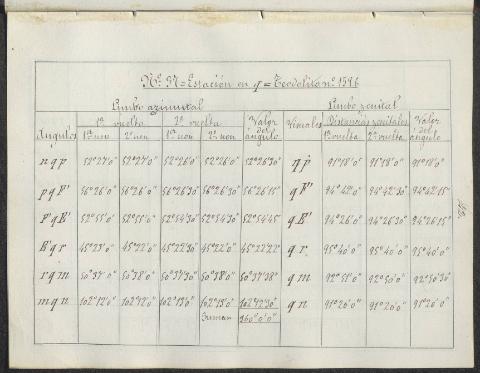 Nº. M=Estación en q=Teodolito nº 1596
Limbo azimutal Limbo zenital
1ª vuelta 2ª vuelta Valor del ángulo Visuales Distancias zenitales Valor del ángulo
Angulos 1er non 2º non 1er non 2º non 1ª vuelta 2ª vuelta
n q p 52°27'0" 52°27'0" 52°26'0" 52°26'0" 52°26'30" q p 91°18'0" 91°18'0" 91°18'0"
p q F' 56°26'0" 56°26'0" 56°26'30" 56°26'30" 56°26'15" q F' 94°42'0" 94°42'30" 94°42'15"
F' q E' 52°55'0" 52°55'0" 52°54'30" 52°54'30" 52°54'45" q E' 94°26'0" 94°26'30" 94°26'15"
E' q r 45°23'0" 45°22'0" 45°22'30" 45°22'0" 45°22'22" q r 95°40'0" 95°40'0" 95°40'0"
r q m 50°37'0" 50°38'0" 50°37'30" 50°38'0" 50°37'38" q m 92°51'0" 92°50'0" 92°50'30"
m q n 102°12'0" 102°12'0" 102°13'0" 102°13'0" 102°12'30" q n 91°26'0" 91°26'0" 91°26'0"
Suman 360°0'0"